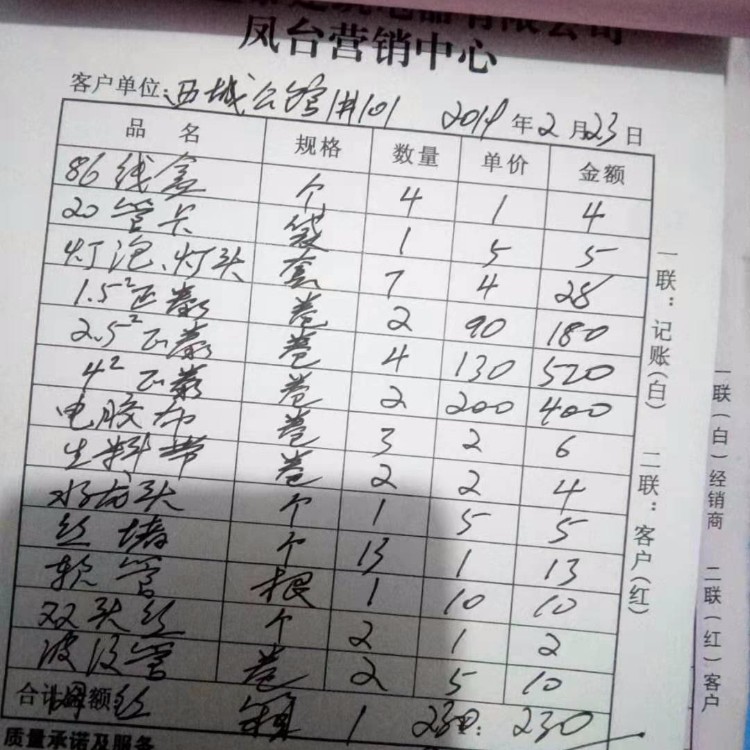 凤台营销中心
客户单位:西城公馆1#101 2019年2月23日
品 名 规格 数量 单价 金额
86线盒 个 4 1 4
20管卡 袋 1 5 5
灯泡、灯头 套 7 4 28
1.5² 卷 2 90 180
2.5² 卷 4 130 520
4² 卷 2 200 400
电胶布 卷 3 2 6
生料带 卷 2 2 4
水龙头 个 1 5 5
丝堵 个 13 1 13
软管 根 1 10 10
双头丝 个 2 1 2
波纹管 卷 2 5 10
合计金额 1 230 230
质量承诺及服务
一联:记账(白) 二联:客户(红)
一联(白)经销商 二联(红)客户